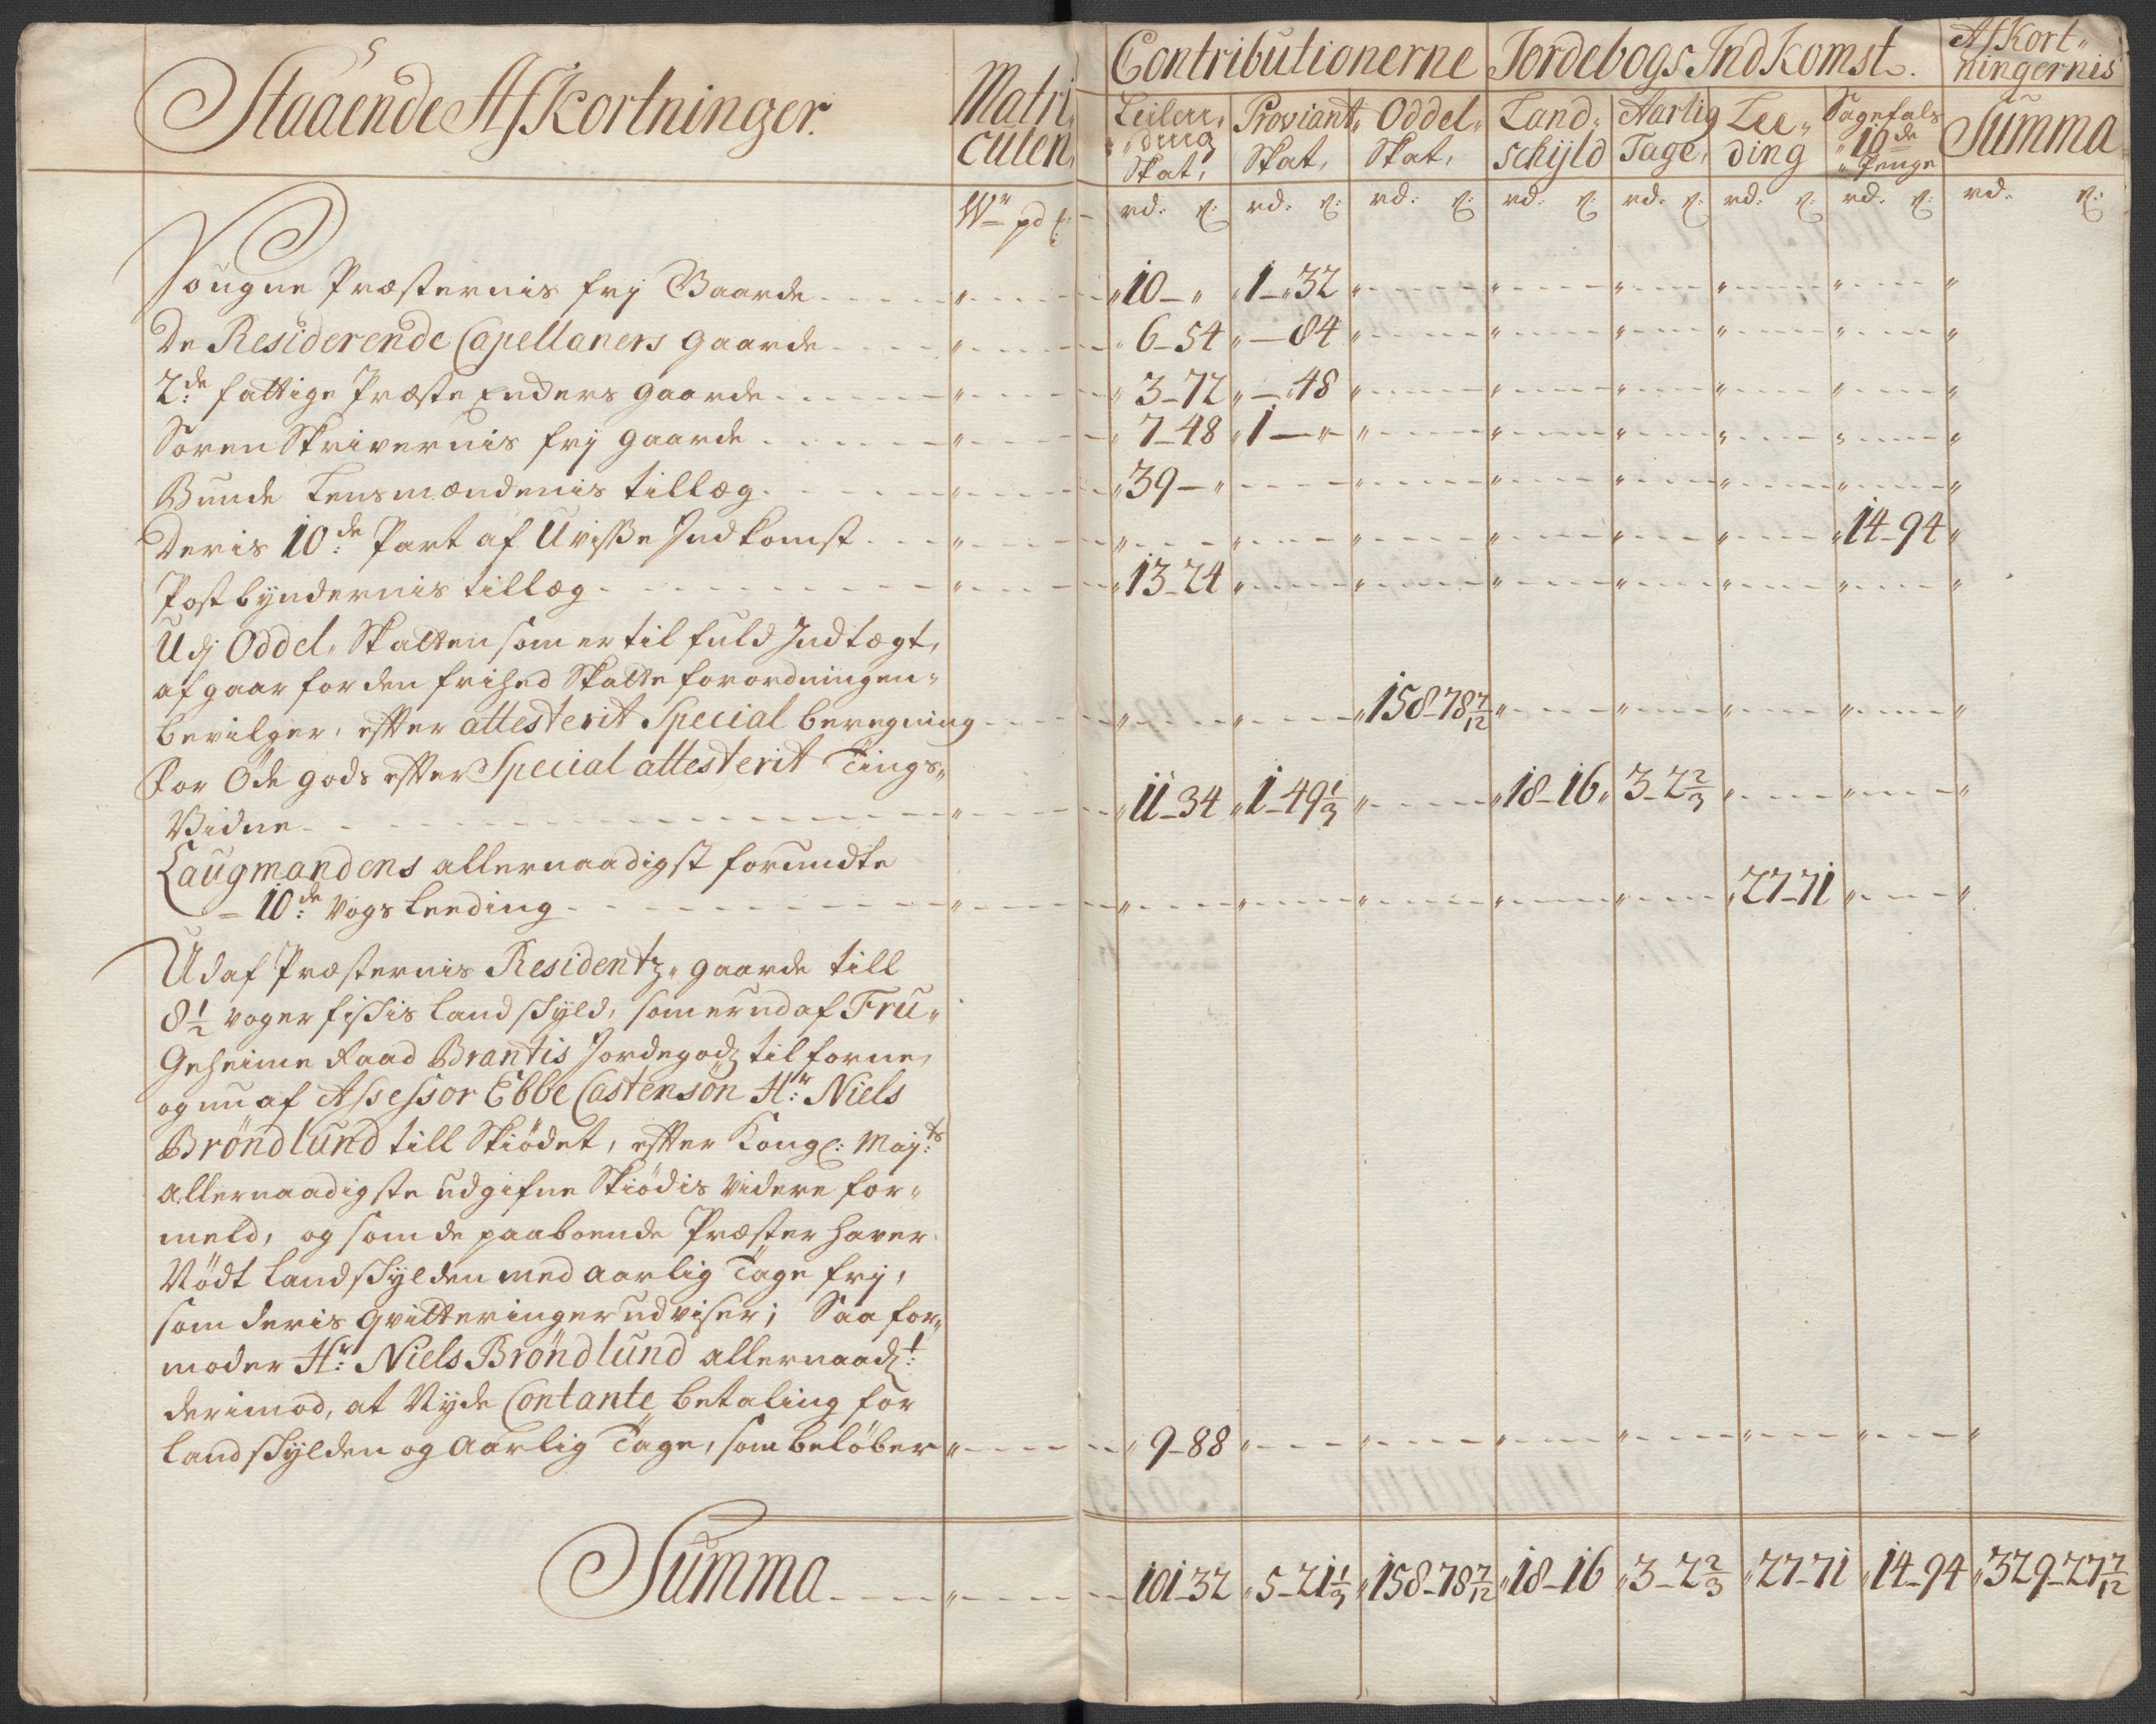 Staaende AfKortninger.
Matri-
culen,
Contributionerne
Jordebogs IndKomst.
AfKort-
ningernis
Leilen-
ding
Skat,
Proviant-
Skat,
Oddel-
Skat,
Land-
schyld
Aarlig
Tage,
Lee-
ding
Sagefals
10de
Penge
Summa
W pd
rd: rd: rd: rd: rd: rd: rd: rd:
Sougne Præsternis frj Gaarde " "10 - " "1 - 32 " " " " " "
De Residerende Capellaners gaarde " 6 - 54 " - 84 " " " " " "
2de fattige Præste Enckers gaarde " 3 - 72 " - 48 " " " " " "
Soren Skrivernis frj gaarde " 7 - 48 "1 - " " " " " " "
Bunde Lensmændenis tillæg " "39 - " " " " " " "
Deris 10de Part af Uvisse Indkomst " " " " " " " "14 - 94 "
Postbyndernis tillæg " "13 - 24 " " " " " " "
Udj Oddel, Skatten som er til fuld Indtægt,
afgaar for den frihed Skatte forordningen
bevilger, effter attesterit Special beregning " " "158 - 78 7/12 " " " " "
For Öde gods effter Special attesterit Tings-
Vidne " "11 - 34 "1 - 49 1/3 " "18 - 16 " 3 - 2 2/3 " " "
Laugmandens allernaadigst forundte
- 10de Vogs Leeding " " " " " " "27 - 71 " "
Udaf Præsternis Residentz- gaarde till
8 1/2 voger fisckis Landschyld, som er udaf Fru-
Geheime Raad Brantis Jordegodz tilforne,
og nu af Assessor Ebbe Castensøn Hr: Niels
Bröndlund till Skiödet, effter Kongl: Mayts
allernaadigste udgifne Skiödis videre for-
meld, og som de paaboende Præster haver
Nödt Landschylden med aarlig Tage frj,
som deris qvitteringer udviser; Saa for-
moder Hr: Niels Bröndlund allernaadt:
derimod, at Nyde Contante betaling for
Landschylden og Aarlig Tage, som belöber " " 9 - 88 " " " " " " "
Summa " 101 - 32 "5 - 21 1/3 "158 - 78 7/12 "18 - 16 "3 - 2 2/3 "27 - 71 "14 - 94 "329 - 27 7/12